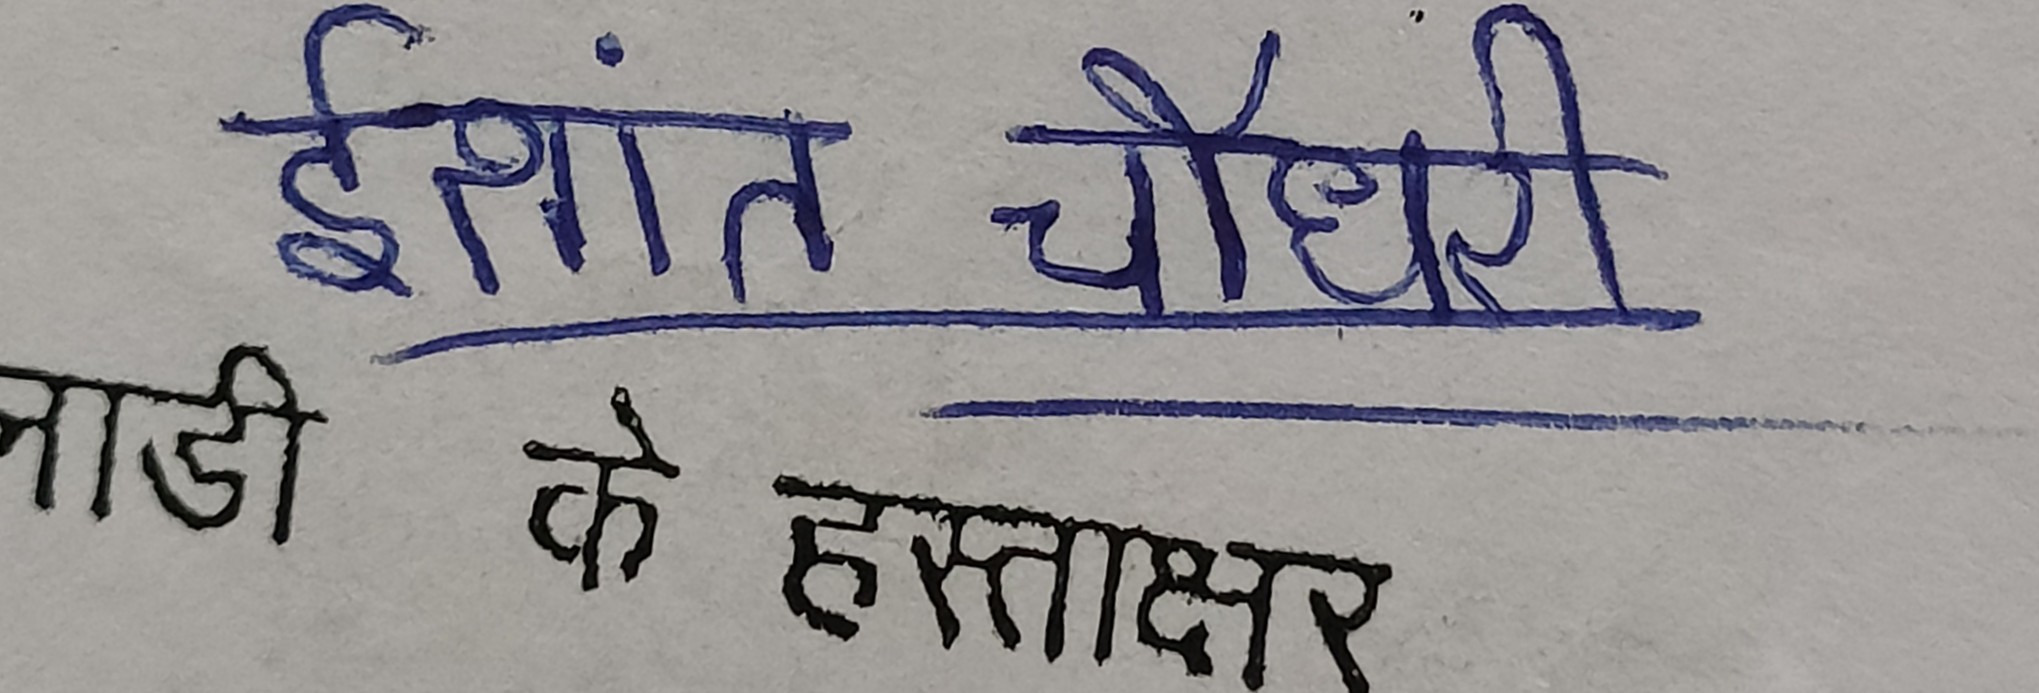 ईशांत चौधरी
के हस्ताक्षर